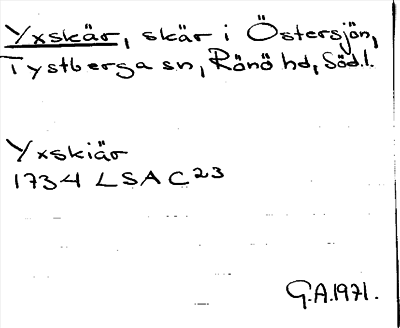 Yxskär, skär i Östersjön,
Tystberga sn, Rönö hd, Söd.l.
Yxskiär
1734 LSA C23
G.A.1971.